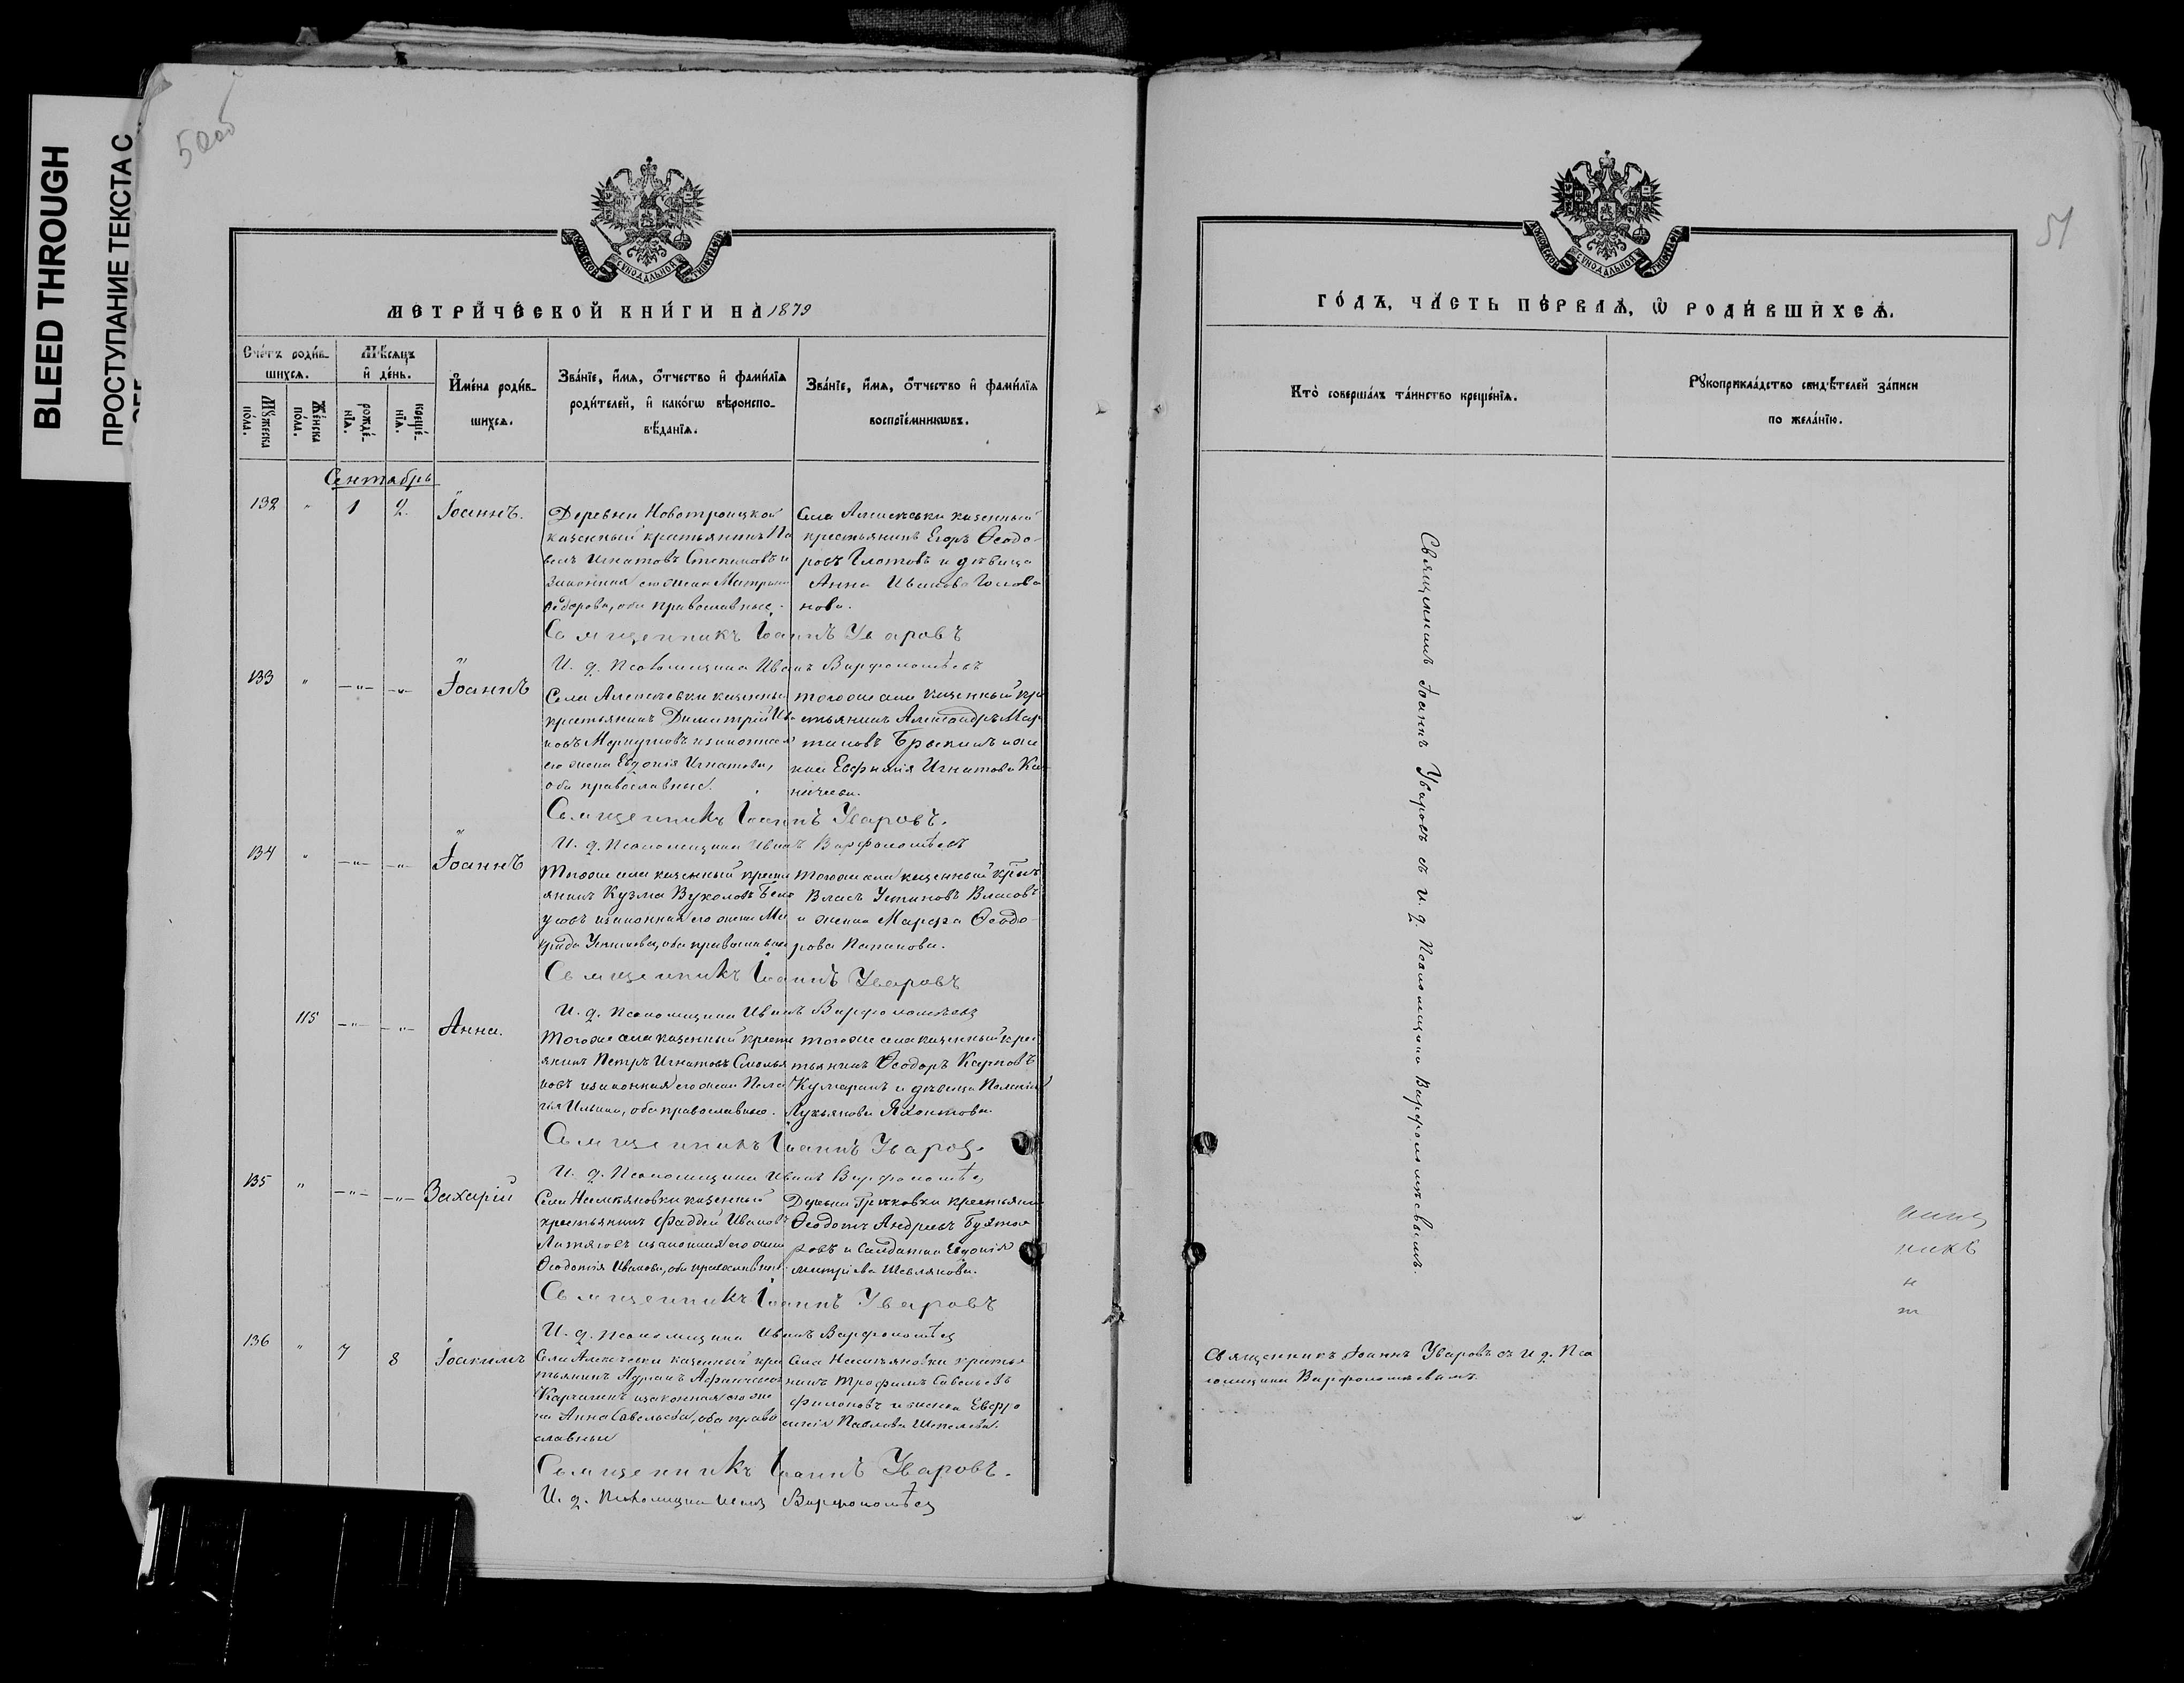 BLEED THROUGH
ПРОСТУПАНИЕ ТЕКСТА С
50об
МЕТРИЧЕСКОЙ КНИГИ НА 1879
Счетъ родив-
шихся.
Мѣсяцъ
и день.
Имена родив-
шихся.
Званіе, имя, отчество и фамилія
родителей, и какогѡ вѣроиспо-
вѣданія.
Званіе, имя, отчество и фамилія
воспріемникѡвъ.
Мужеска
пола.
Женска
пола.
рожде-
нія.
креще-
нія.
Сентябрь
132 " 1 2. Іоаннъ.
Деревни Новотроицкой
казенный крестьянинъ Па
велъ Игнатовъ и
законная его жена Матрона
Ѳедорова, оба православные.
Села казенный
крестьянинъ Егоръ Ѳеодо-
ровъ Глотовъ и дѣвица
Анна Иванова
нова.
Священникъ Іоаннъ Уваровъ
И. д. Псаломщика Иванъ Варфоломѣевъ
133 " -"- -"- Іоаннъ
Села казенный
крестьянинъ Димитрій Ива
новъ и законная
его жена Евдокія Игнатова,
оба православные.
Того же села казенный кре
стьянинъ Александръ Мар
тиновъ и
Евфимія Игнатова
Священникъ Іоаннъ Уваровъ.
И. д. Псаломщика Иванъ Варфоломѣевъ
134 " -"- -"- Іоаннъ
Того же села казенный кресть
янинъ Кузма Вуколовъ Бело
усовъ и законная его жена Ма
оба православные
Того же села казенный крест
Власъ Устиновъ Власовъ
и жена Марфа Ѳеодо-
рова Папанова.
Священникъ Іоаннъ Уваровъ
И. д. Псаломщика Иванъ Варфоломѣевъ
115 -"- -"- Анна.
Того же села казенный кресть
янинъ Петръ Игнатовъ Смолья
новъ и законная его жена Пела
гія Ильина, оба православные.
Того же села казенный крес
тьянинъ Ѳеодоръ Карповъ
и дѣвица Пелагія
Лукьянова Яхонтова.
Священникъ Іоаннъ Уваровъ.
И. д. Псаломщика Иванъ Варфоломѣевъ
135 " -"- -"- Захарій
Села казенный
крестьянинъ Фаддей Ивановъ
и законная его жена
Ѳеодотія Иванова, оба православные.
Деревни крестьянинъ
Ѳеодотъ Андреевъ
ровъ и солдатка Евдокія
митріева Шевлякова.
Священникъ Іоаннъ Уваровъ
И. д. Псаломщика Иванъ Варфоломѣевъ
136 " 7 8 Іоакимъ
Села казенный кре
стьянинъ Адріанъ
и законная его же
на Анна Савельева, оба право
славные
Села кресть
нинъ Трофимъ Савельевъ
Филоповъ и жена Евфро
синія Павлова Шепелева.
Священникъ Іоаннъ Уваровъ.
И. д. Псаломщика Иванъ Варфоломѣевъ
51
ГОДЪ, ЧАСТЬ ПЕРВАЯ, Ѡ РОДИВШИХСЯ.
Кто совершалъ таинство крещенія.
Рукоприкладство свидѣтелей записи
по желанію.
Священникъ Іоаннъ Уваровъ съ и. д. Псаломщика Варфоломѣевымъ.
Священникъ Іоаннъ Уваровъ съ и. д. Пса
ломщика Варфоломѣевымъ.